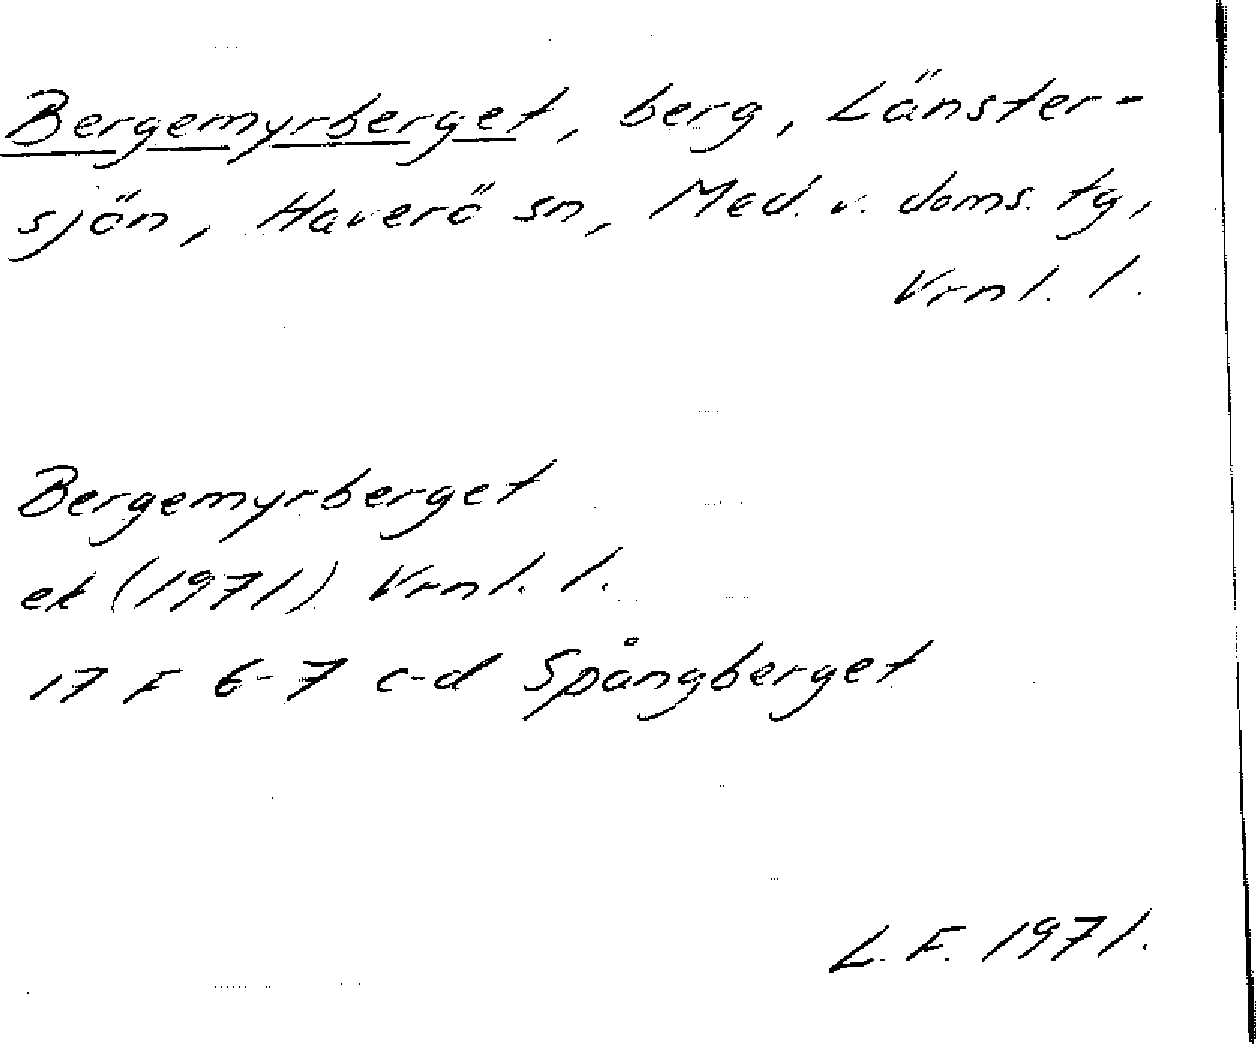 Bergemyrberget, berg, Länster-
sjön, Haverö sn, Med. v. doms. tg,
Vrnl. l.
Bergemyrberget
ek (1971) Vrnl. l.
17 F 6-7 c-d Spångberget
L.F. 1971.